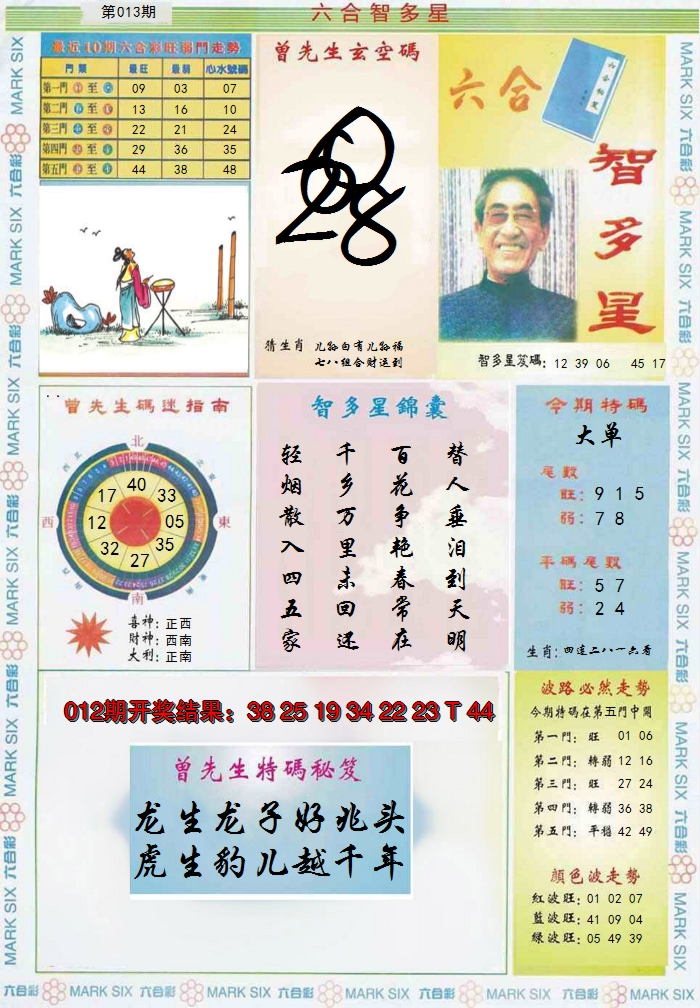 第013期
六合智多星
最近10期六合彩旺弱門走勢
門類 最旺 最弱 心水號碼
第一門 至 09 03 07
第二門 至 13 16 10
第三門 至 22 21 24
第四門 至 29 36 35
第五門 至 44 38 48
曾先生玄空碼
28
猜生肖 儿孙自有儿孙福
七八组合财运到
六合
智多星
智多星笈碼: 12 39 06 45 17
曾先生碼迷指南
北
西
東
南
40
33
05
35
27
32
12
17
喜神: 正西
财神: 西南
大利: 正南
智多星錦囊
替人垂泪到天明
百花争艳春常在
千乡万里未回还
轻烟散入四五家
今期特碼
大单
尾數
旺: 9 1 5
弱: 7 8
平碼尾數
旺: 5 7
弱: 2 4
生肖: 四连二八一六看
012期开奖结果: 38 25 19 34 22 23 T 44
曾先生特碼秘笈
龙生龙子好兆头
虎生豹儿越千年
波路必然走勢
今期特碼在第五門中開
第一門: 旺 01 06
第二門: 轉弱 12 16
第三門: 旺 27 24
第四門: 轉弱 36 38
第五門: 平穩 42 49
顔色波走勢
紅波旺: 01 02 07
藍波旺: 41 09 04
綠波旺: 05 49 39
MARK SIX 六合彩